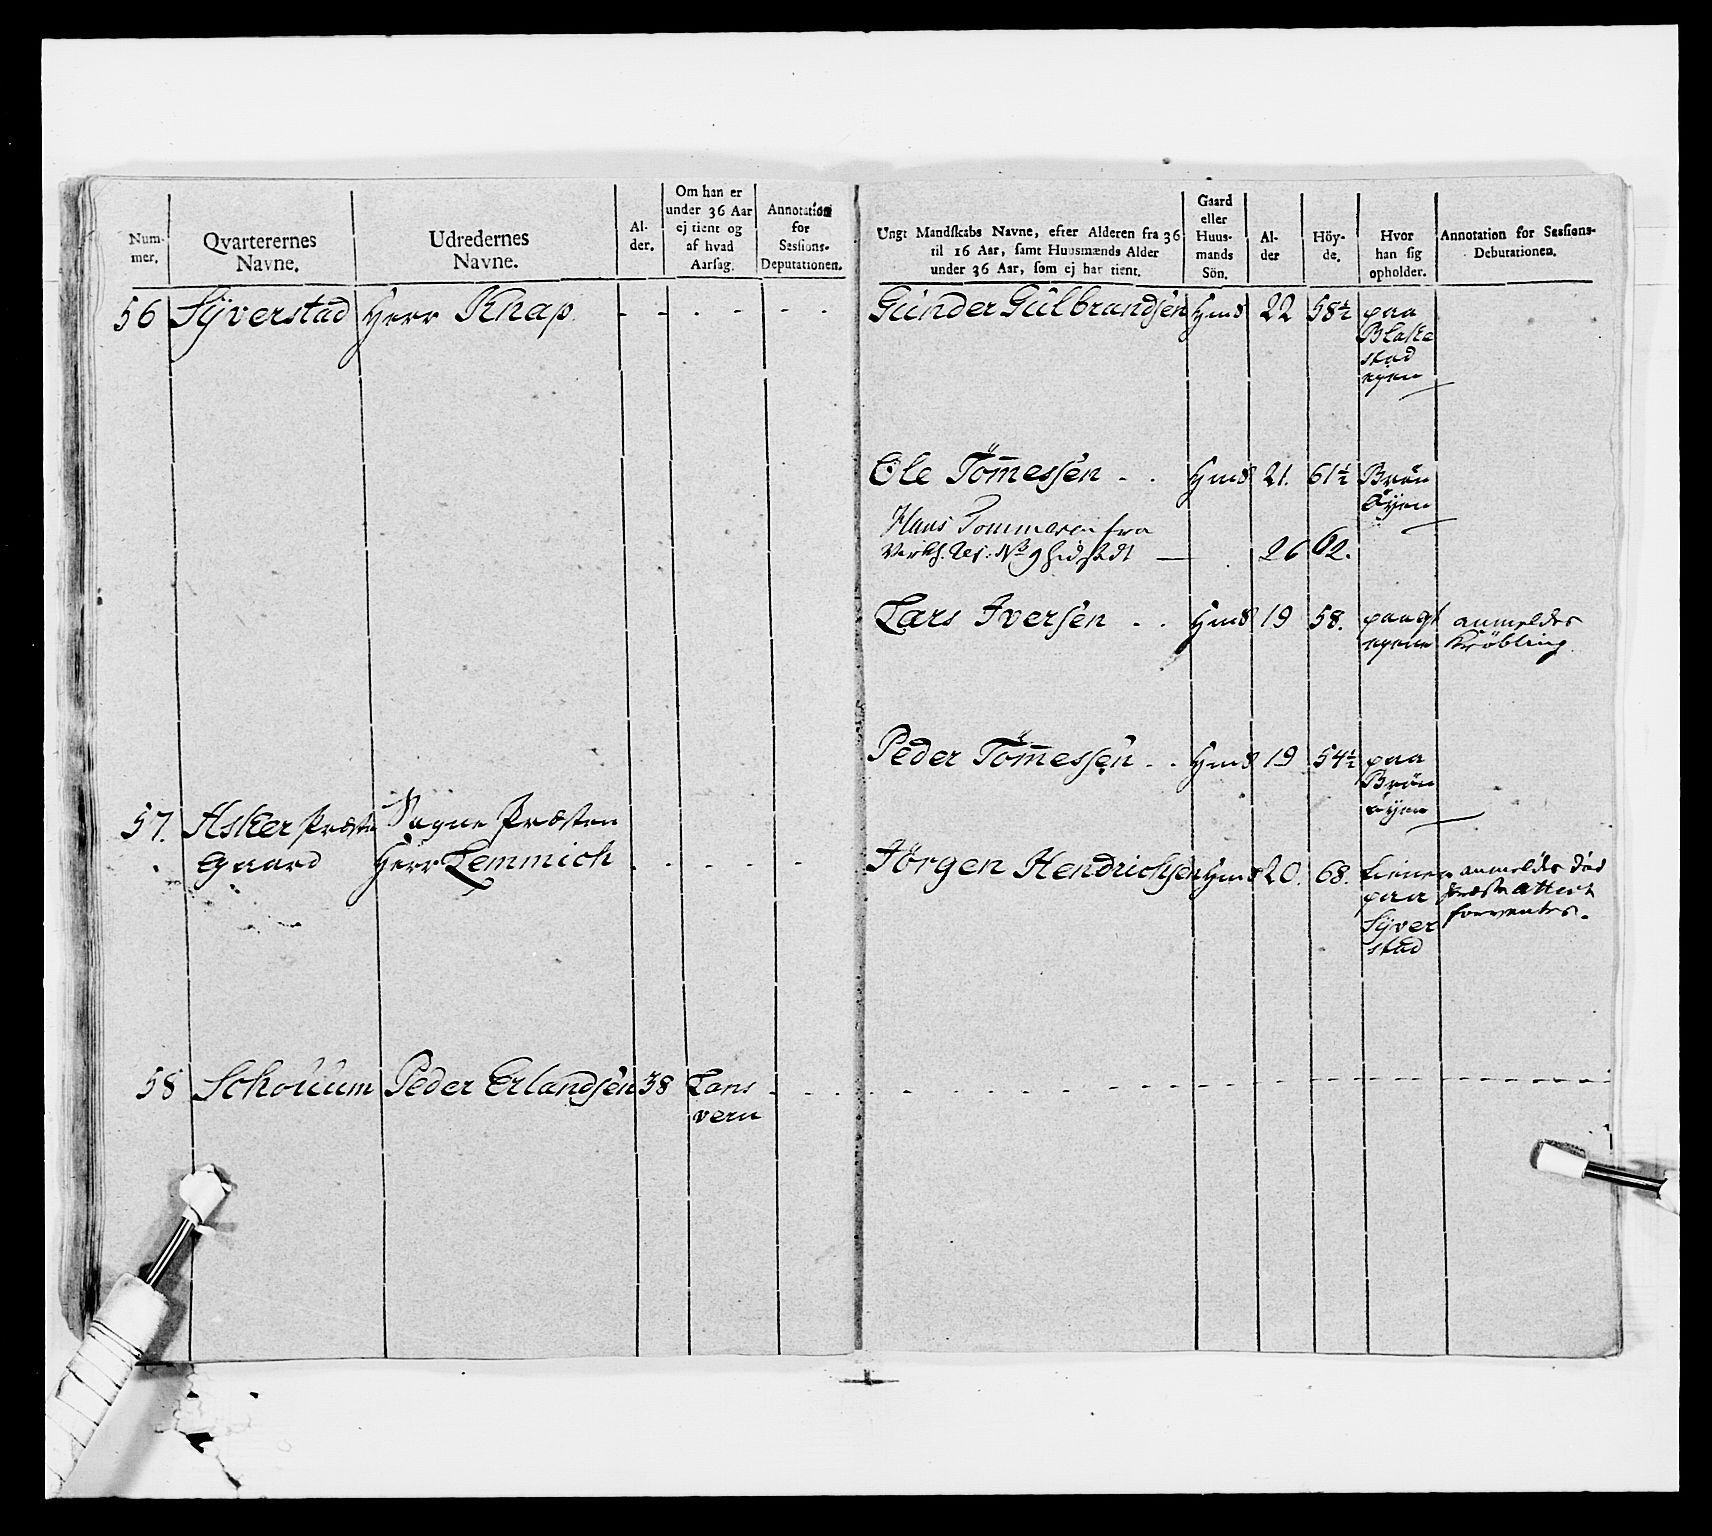 Num-
mer.
Qvarterernes
Navne.
Udredernes
Navne.
Al-
der.
Om han er
under 36 Aar
ej tient og
af hvad
Aarsag.
Annotation
for
Sessions-
Deputationen.
Ungt Mandskabs Navne, efter Alderen fra 36
til 16 Aar, samt Huusmænds Alder
under 36 Aar, som ej har tient.
Gaard
eller
Huus-
mands
Sön.
Al-
der
Höy-
de.
Hvor
han sig
opholder.
Annotation for Sessions-
Debutationen.
56 Sÿverstad Herr Knap. Günder Gülbrandsen Hmds 22 58½ paa
Blake
stad
eyen
Ole Tom̄essen Hmds 21. 61½ Brøn
øyen
Hans Tommesen fra
No 9 26 62.
Lars Iversen Hmds 19 58. anmeldes
Krøbling.
Peder Tom̄essen Hmds 19 54½ paa
Brøn
øyen
57. Asker Præste Sogne Præsten
gaard Herr Lemmich Jørgen Hendrichsen Hmds 20. 68. tiener anmeldes død
paa Præste Attest
Sÿver forventes.
stad
58 Schouum Peder Erlandsen 38 Lans
vern